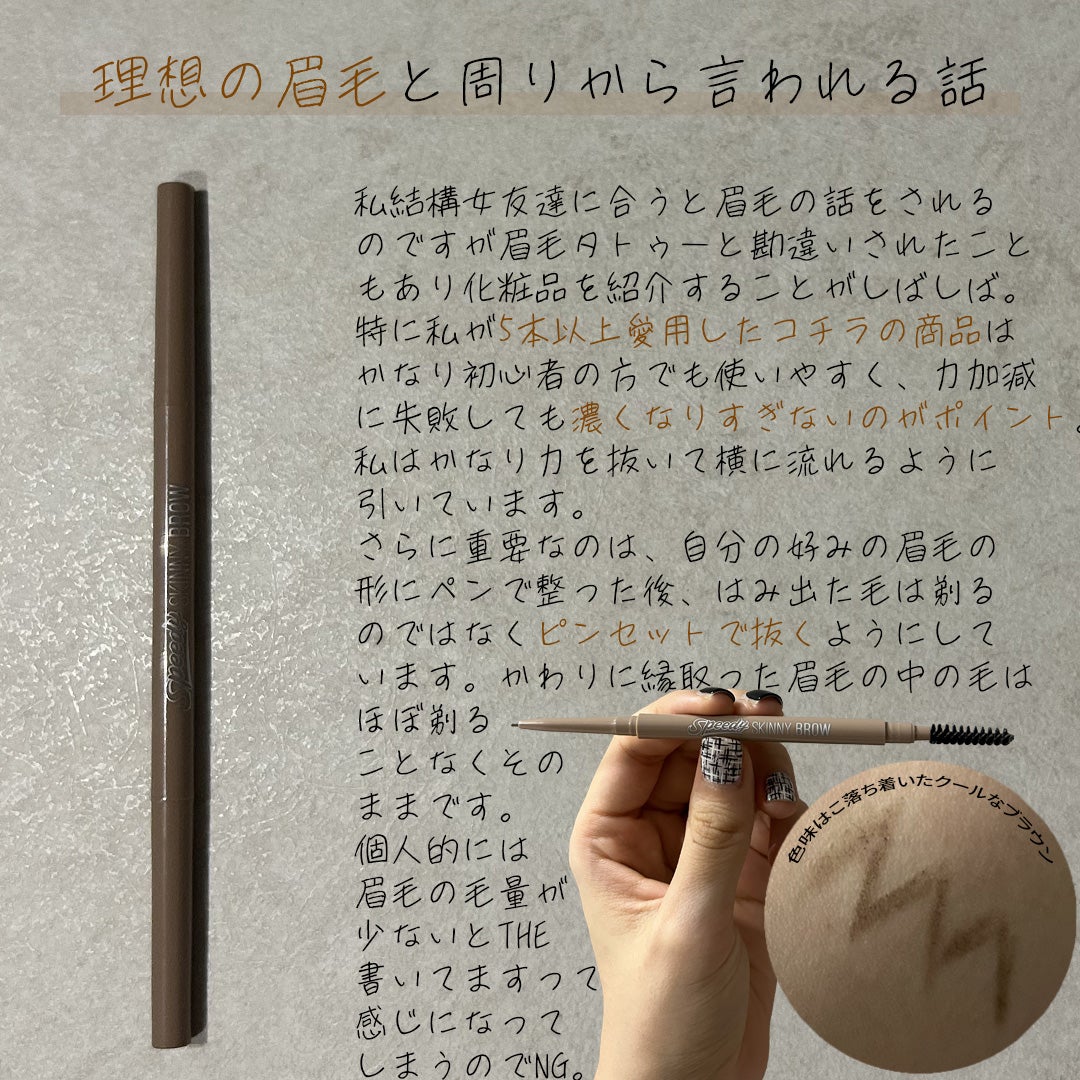 理想の眉毛と周りから言われる話
私結構女友達に合うと眉毛の話をされる
のですが眉毛タトゥーと勘違いされたこと
もあり化粧品を紹介することがしばしば。
特に私が5本以上愛用したコチラの商品は
かなり初心者の方でも使いやすく、力加減
に失敗しても濃くなりすぎないのがポイント。
私はかなり力を抜いて横に流れるように
引いています。
さらに重要なのは、自分の好みの眉毛の
形にペンで整った後、はみ出た毛は剃る
のではなくピンセットで抜くようにして
います。かわりに縁取った眉毛の中の毛は
ほぼ剃る
ことなくその
ままです。
個人的には
眉毛の毛量が
少ないとTHE
書いてますって
感じになって
しまうのでNG。
Speedy SKINNY BROW
Speedy SKINNY BROW
色味はこ落ち着いたクールなブラウン